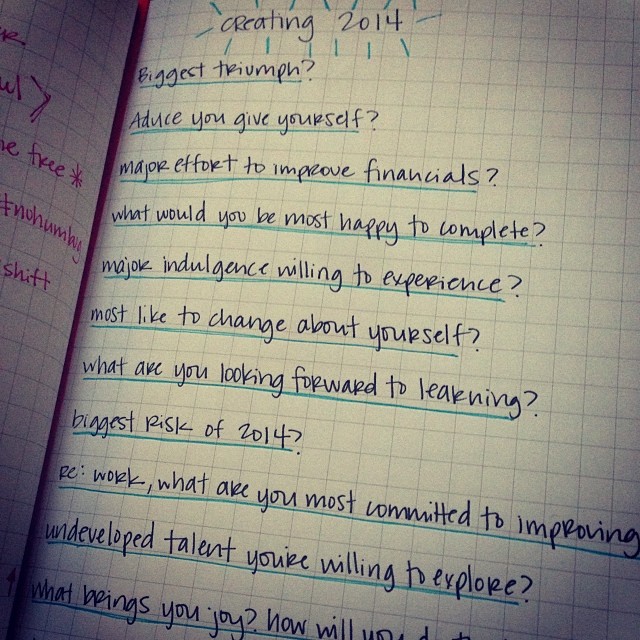 creating 2014
Biggest triumph?
Aduce you give yourself?
major effort to improve financials?
what would you be most happy to complete?
major indulgence willing to experience?
most like to change about yourself?
what are you looking forward to learning?
biggest risk of 2014?
Re: work, what are you most committed to improving
undeveloped talent you're willing to explore?
what brings you joy? How will you
e free *
#nohumbug
shift